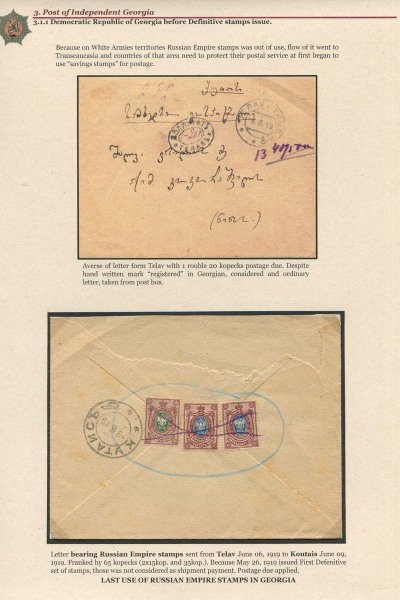 3. Post of Independent Georgia
3.1.1 Democratic Republic of Georgia before Definitive stamps issue.
Because on White Armies territories Russian Empire stamps was out of use, flow of it went to
Transcaucasia and countries of that area need to protect their postal service at first began to
use “savings stamps” for postage.
Averse of letter form Telav with 1 rouble 20 kopecks postage due. Despite
hand written mark “registered” in Georgian, considered and ordinary
letter, taken from post box.
КУТАИСЪ
Letter bearing Russian Empire stamps sent from Telav June 06, 1919 to Koutais June 09,
1919. Franked by 65 kopecks (2x15kop. and 35kop.). Because May 26, 1919 issued First Defenitive
set of stamps, those was not considered as shipment payment. Postage due applied.
LAST USE OF RUSSIAN EMPIRE STAMPS IN GEORGIA